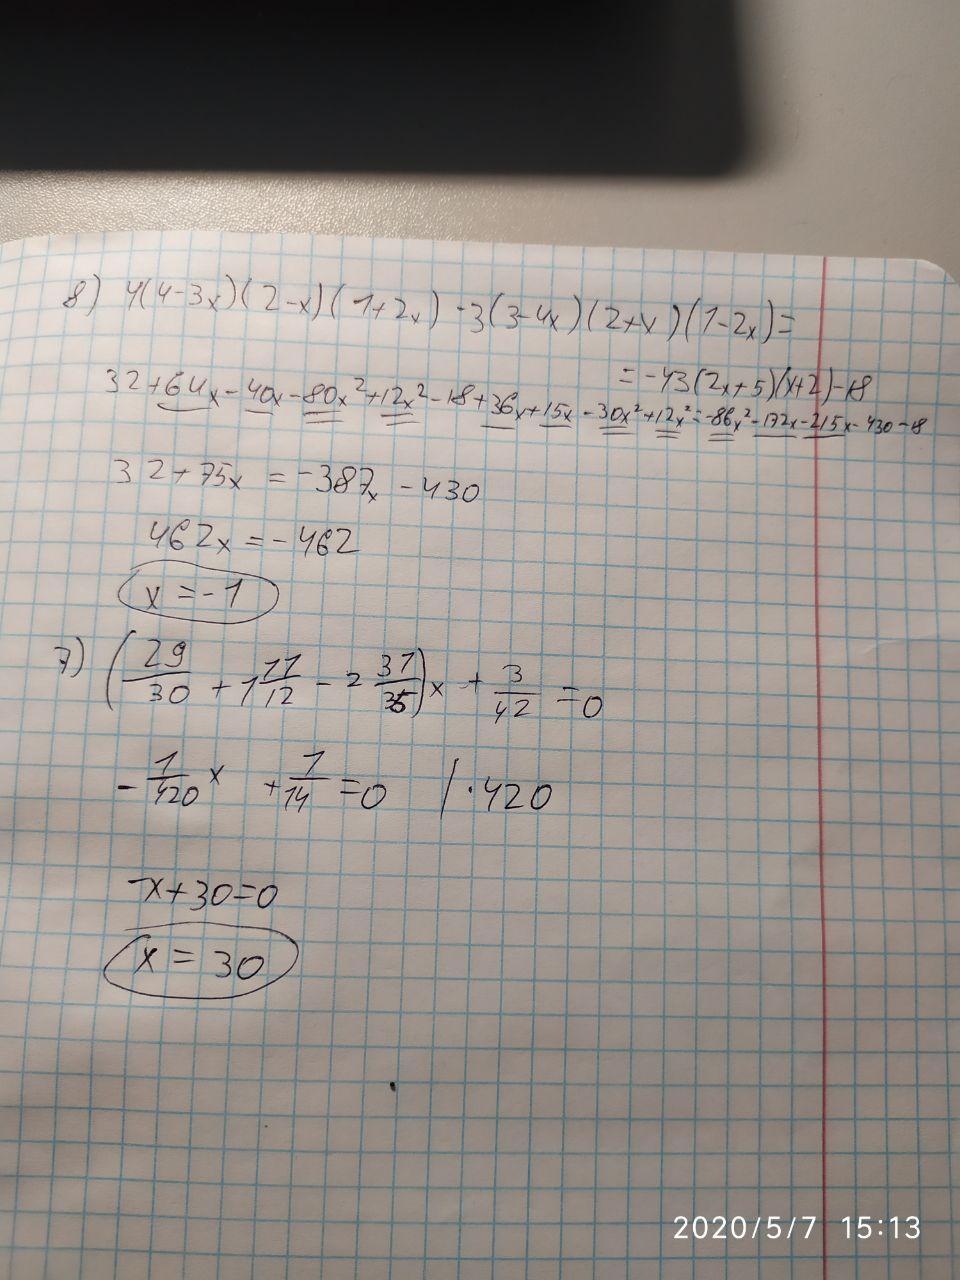 8) 4(4-3x)(2-x)(1+2x) -3(3-4x)(2+x)(1-2x)=
= -43(2x+5)(x+2)-18
32+64x-40x-80x²+12x²-18+36x+15x-30x²+12x²=-86x²-172x-215x-430-18
32+75x = -387x -430
462x = -462
x = -1
7) (29/30 + 1 11/12 - 2 31/35)x + 3/42 = 0
- 1/420 x + 1/14 = 0 | ·420
-x+30=0
x = 30
2020/5/7 15:13